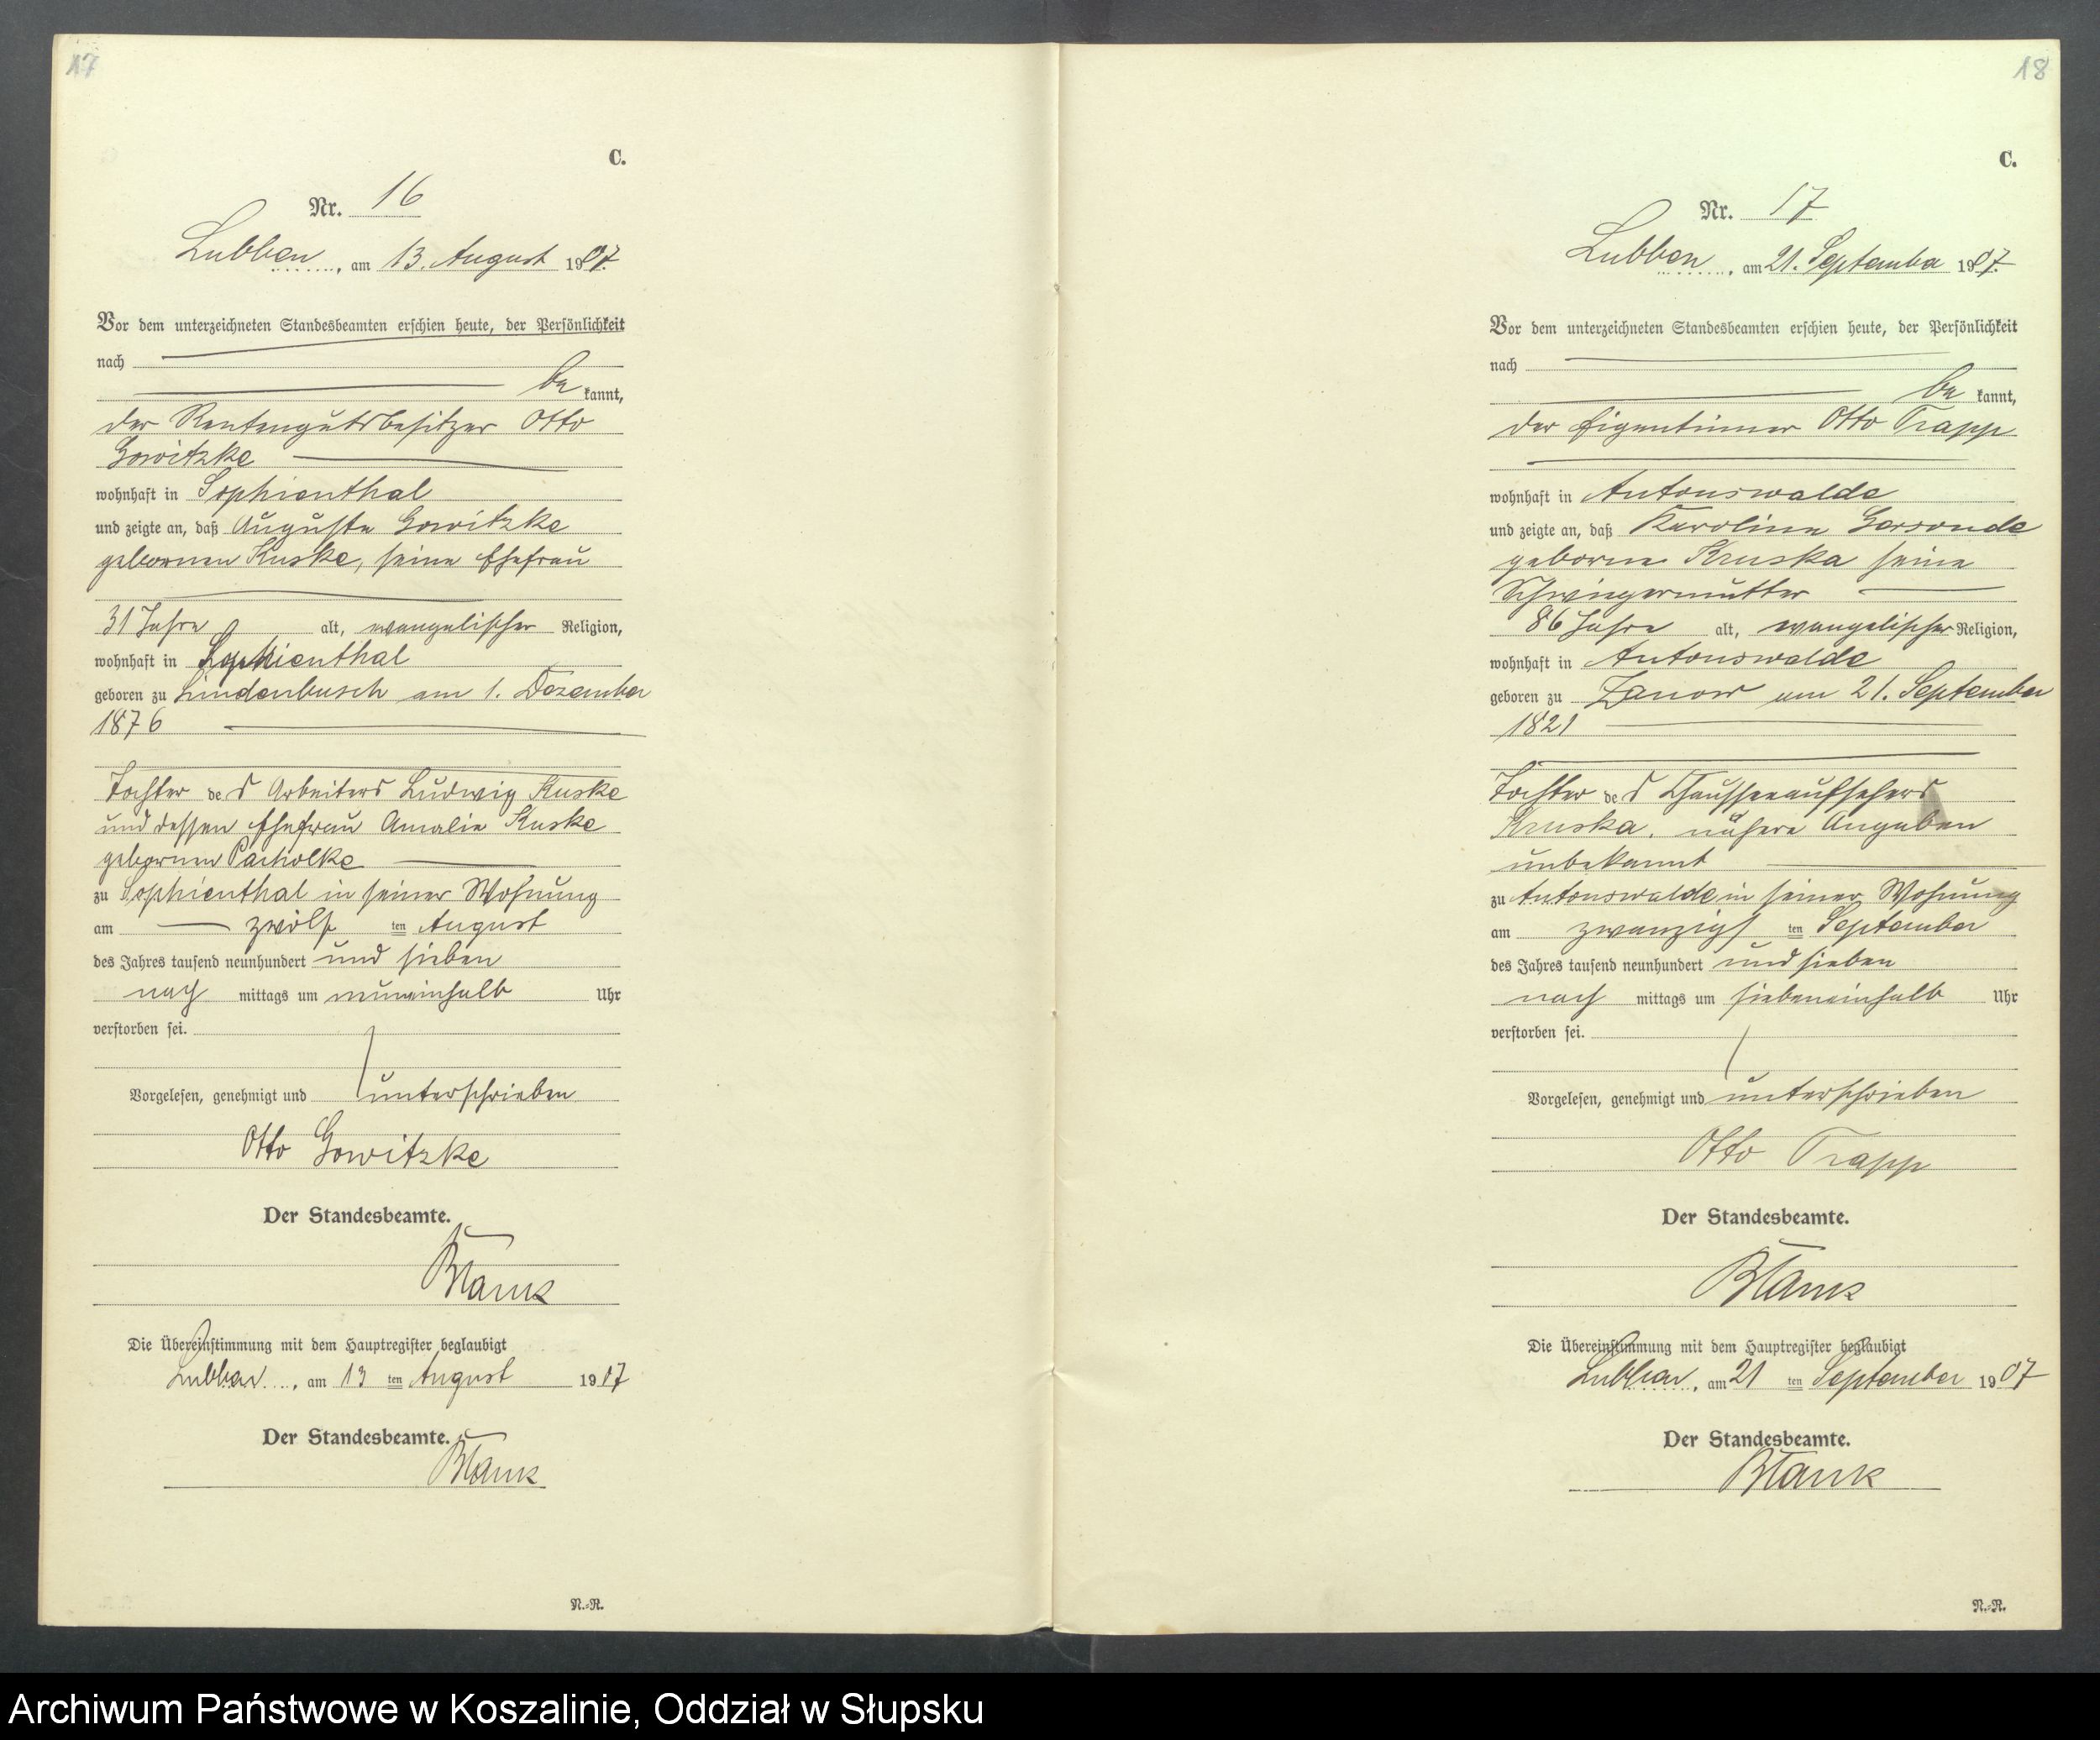 17
C.
Nr. 16
Lubben, am 13. August 1907.
Vor dem unterzeichneten Standesbeamten erschien heute, der Persönlichkeit
nach
be kannt,
der Rentengutsbesitzer Otto
Gowitzke
wohnhaft in Sophienthal
und zeigte an, daß Auguste Gowitzke
geborenen Kuske, seine Ehefrau
31 Jahre alt, evangelischer Religion,
wohnhaft in Sophienthal
geboren zu Lindenbusch am 1. Dezember
1876
Tochter des Arbeiters Ludwig Kuske
und dessen Ehefrau Amalie Kuske
geborenen Pacholke
zu Sophienthal in seiner Wohnung
am zwölf ten August
des Jahres tausend neunhundert und sieben
nach mittags um neuneinhalb Uhr
verstorben sei.
Vorgelesen, genehmigt und unterschrieben
Otto Gowitzke
Der Standesbeamte.
Blank
Die Übereinstimmung mit dem Hauptregister beglaubigt
Lubben, am 13 ten August 1907
Der Standesbeamte.
Blank
N.-R.
18
C.
Nr. 17
Lubben, am 21. September 1907.
Vor dem unterzeichneten Standesbeamten erschien heute, der Persönlichkeit
nach
be kannt,
der Eigentümer Otto Trapp
wohnhaft in Antonswalde
und zeigte an, daß Karoline Gersonde
geborene Kruska seine
Schwiegermutter
86 Jahre alt, evangelischer Religion,
wohnhaft in Antonswalde
geboren zu Zanow am 21. September
1821
Tochter des Chausseeaufsehers
Kruska, nähere Angaben
unbekannt
zu Antonswalde in seiner Wohnung
am zwanzigs ten September
des Jahres tausend neunhundert und sieben
nach mittags um siebeneinhalb Uhr
verstorben sei.
Vorgelesen, genehmigt und unterschrieben
Otto Trapp
Der Standesbeamte.
Blank
Die Übereinstimmung mit dem Hauptregister beglaubigt
Lubben, am 21 ten September 1907
Der Standesbeamte.
Blank
N.-R.
Archiwum Państwowe w Koszalinie, Oddział w Słupsku